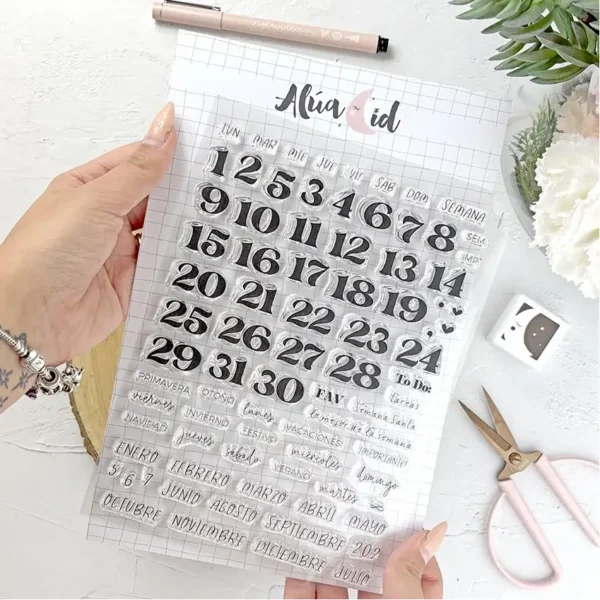 Alúa Cid
LUN MAR MIE JUE VIE SAB DOM SEMANA
1 2 5 3 4 6 7 8 SEM
9 10 11 12 13 14 IMP
15 16 17 18 19
20 21 22 23 24
25 26 27 28
29 31 30 FAV To Do:
PRIMAVERA OTOÑO tareas
Semana Santa
viernes lunes lo mejor de la semana
NAVIDAD INVIERNO FESTIVO VACACIONES IMPORTANTE
jueves sábado miércoles domingo
VERANO martes
ENERO FEBRERO MARZO ABRIL MAYO
5 6 7
OCTUBRE JUNIO AGOSTO SEPTIEMBRE 202
NOVIEMBRE DICIEMBRE JULIO